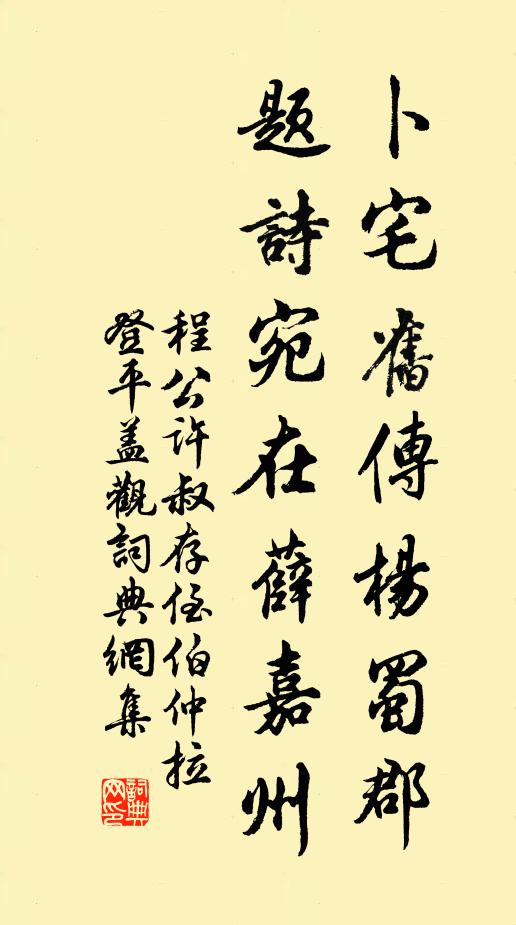 卜宅舊傳楊蜀郡
題詩宛在薛嘉州
程公許叔存侄伯仲拉
登平蓋觀詞典網集
詞典
网印